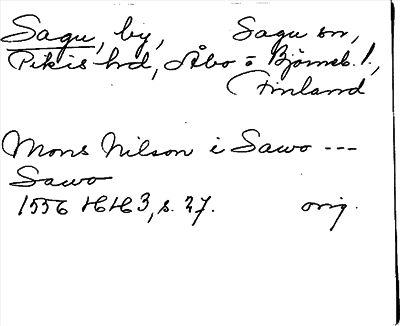 Sagu, by, Sagu sn,
Pikis hd, Åbo o Björneb. l.,
Finland
Mons Nilson i Sawo ---
Sawo
1556 HH 3, s. 27. orig.